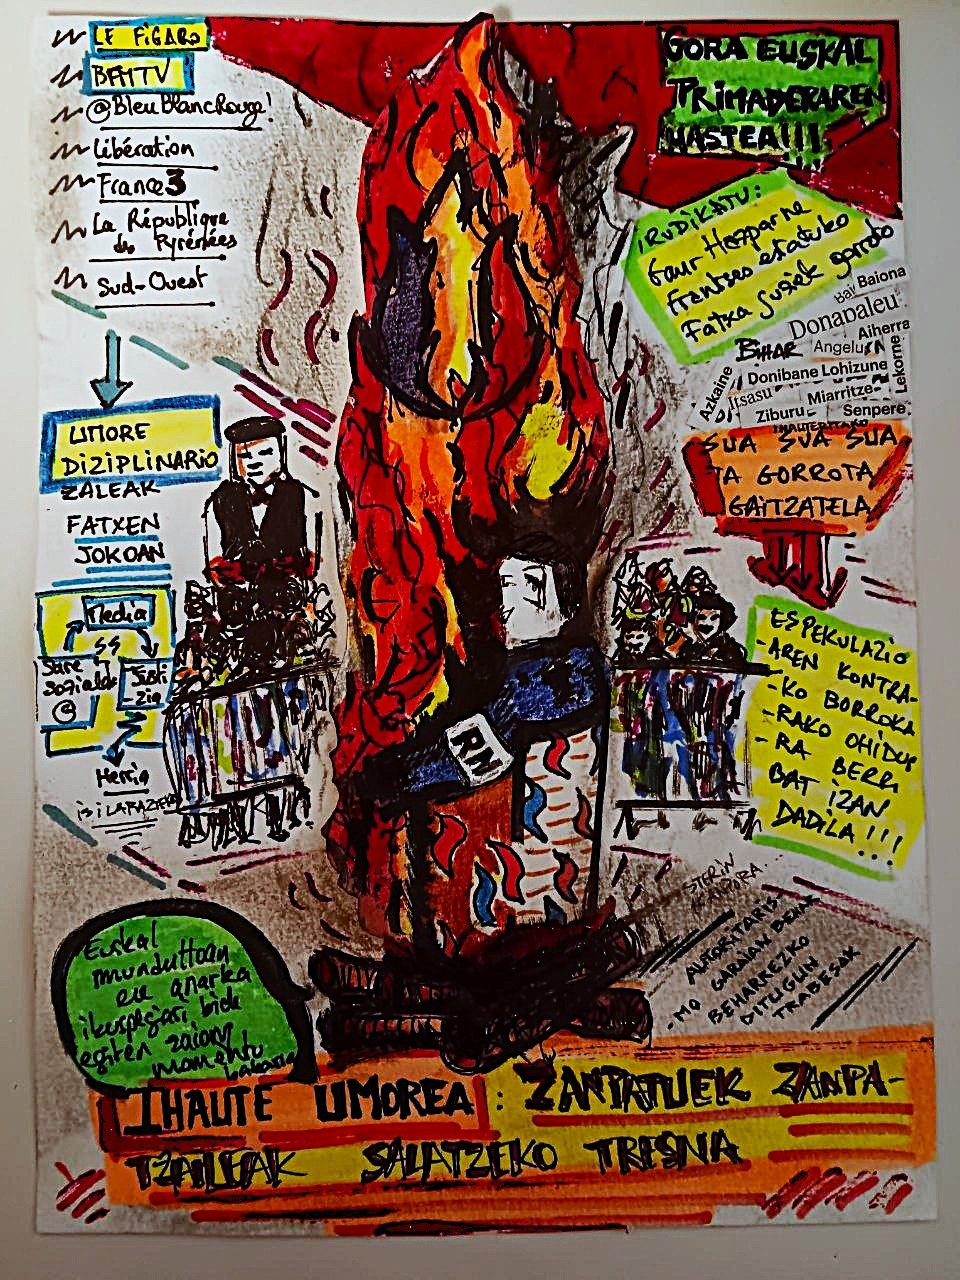 LE FIGARO
BFMTV
@BleuBlancRouge!
Libération
France3
La République
des Pyrénées
Sud-Ouest
UMORE
DIZIPLINARIO
ZALEAK
FATXEN
JOKOAN
Media
Sare
sozialak
@
Justi
zia
Herria
isilarazteko
GORA EUSKAL
PRIMADERAREN
HASTEA!!!
IRUDIKATU:
Gaur Hazparne
frantses estatuko
Fatxa guziek gorroto
Bai Baiona
Donapaleu
BIHAR
Angelu
Aiherra
Azkaine
Itsasu
Donibane Lohizune
Lekorne
Miarritze
Ziburu
Senpere
IHAUTERITAKO
SUA SUA SUA
TA GORROTA
GAITZATELA
ESPEKULAZIO
-AREN KONTRA-
-KO BORROKA
-RAKO OHIDUR
-RA BERRI
BAT IZAN
DADILA!!!
RN
AUTORITARIS-
-MO GARAIAN BEHAR
BEHARREZKO
DITUGUN
TRABESAK
Euskal
munduttoan
ere anarka
ikuspegiari bide
egiten zaion
momentu
bakarra
IHAUTE UMOREA: ZANPATUEK ZANPA-
TZAILEAK SALATZEKO TRESNA